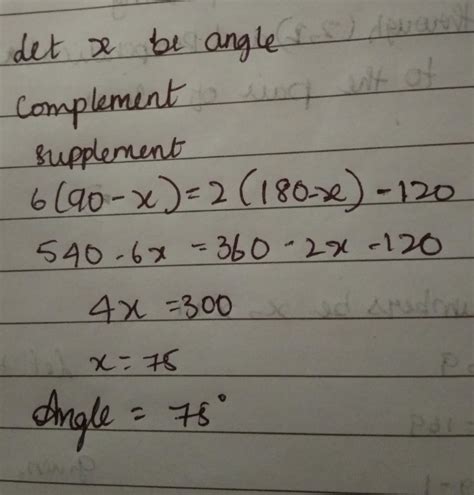 let x be angle
complement
supplement
6(90-x)=2(180-x)-120
540-6x=360-2x-120
4x=300
x=75
Angle = 75°